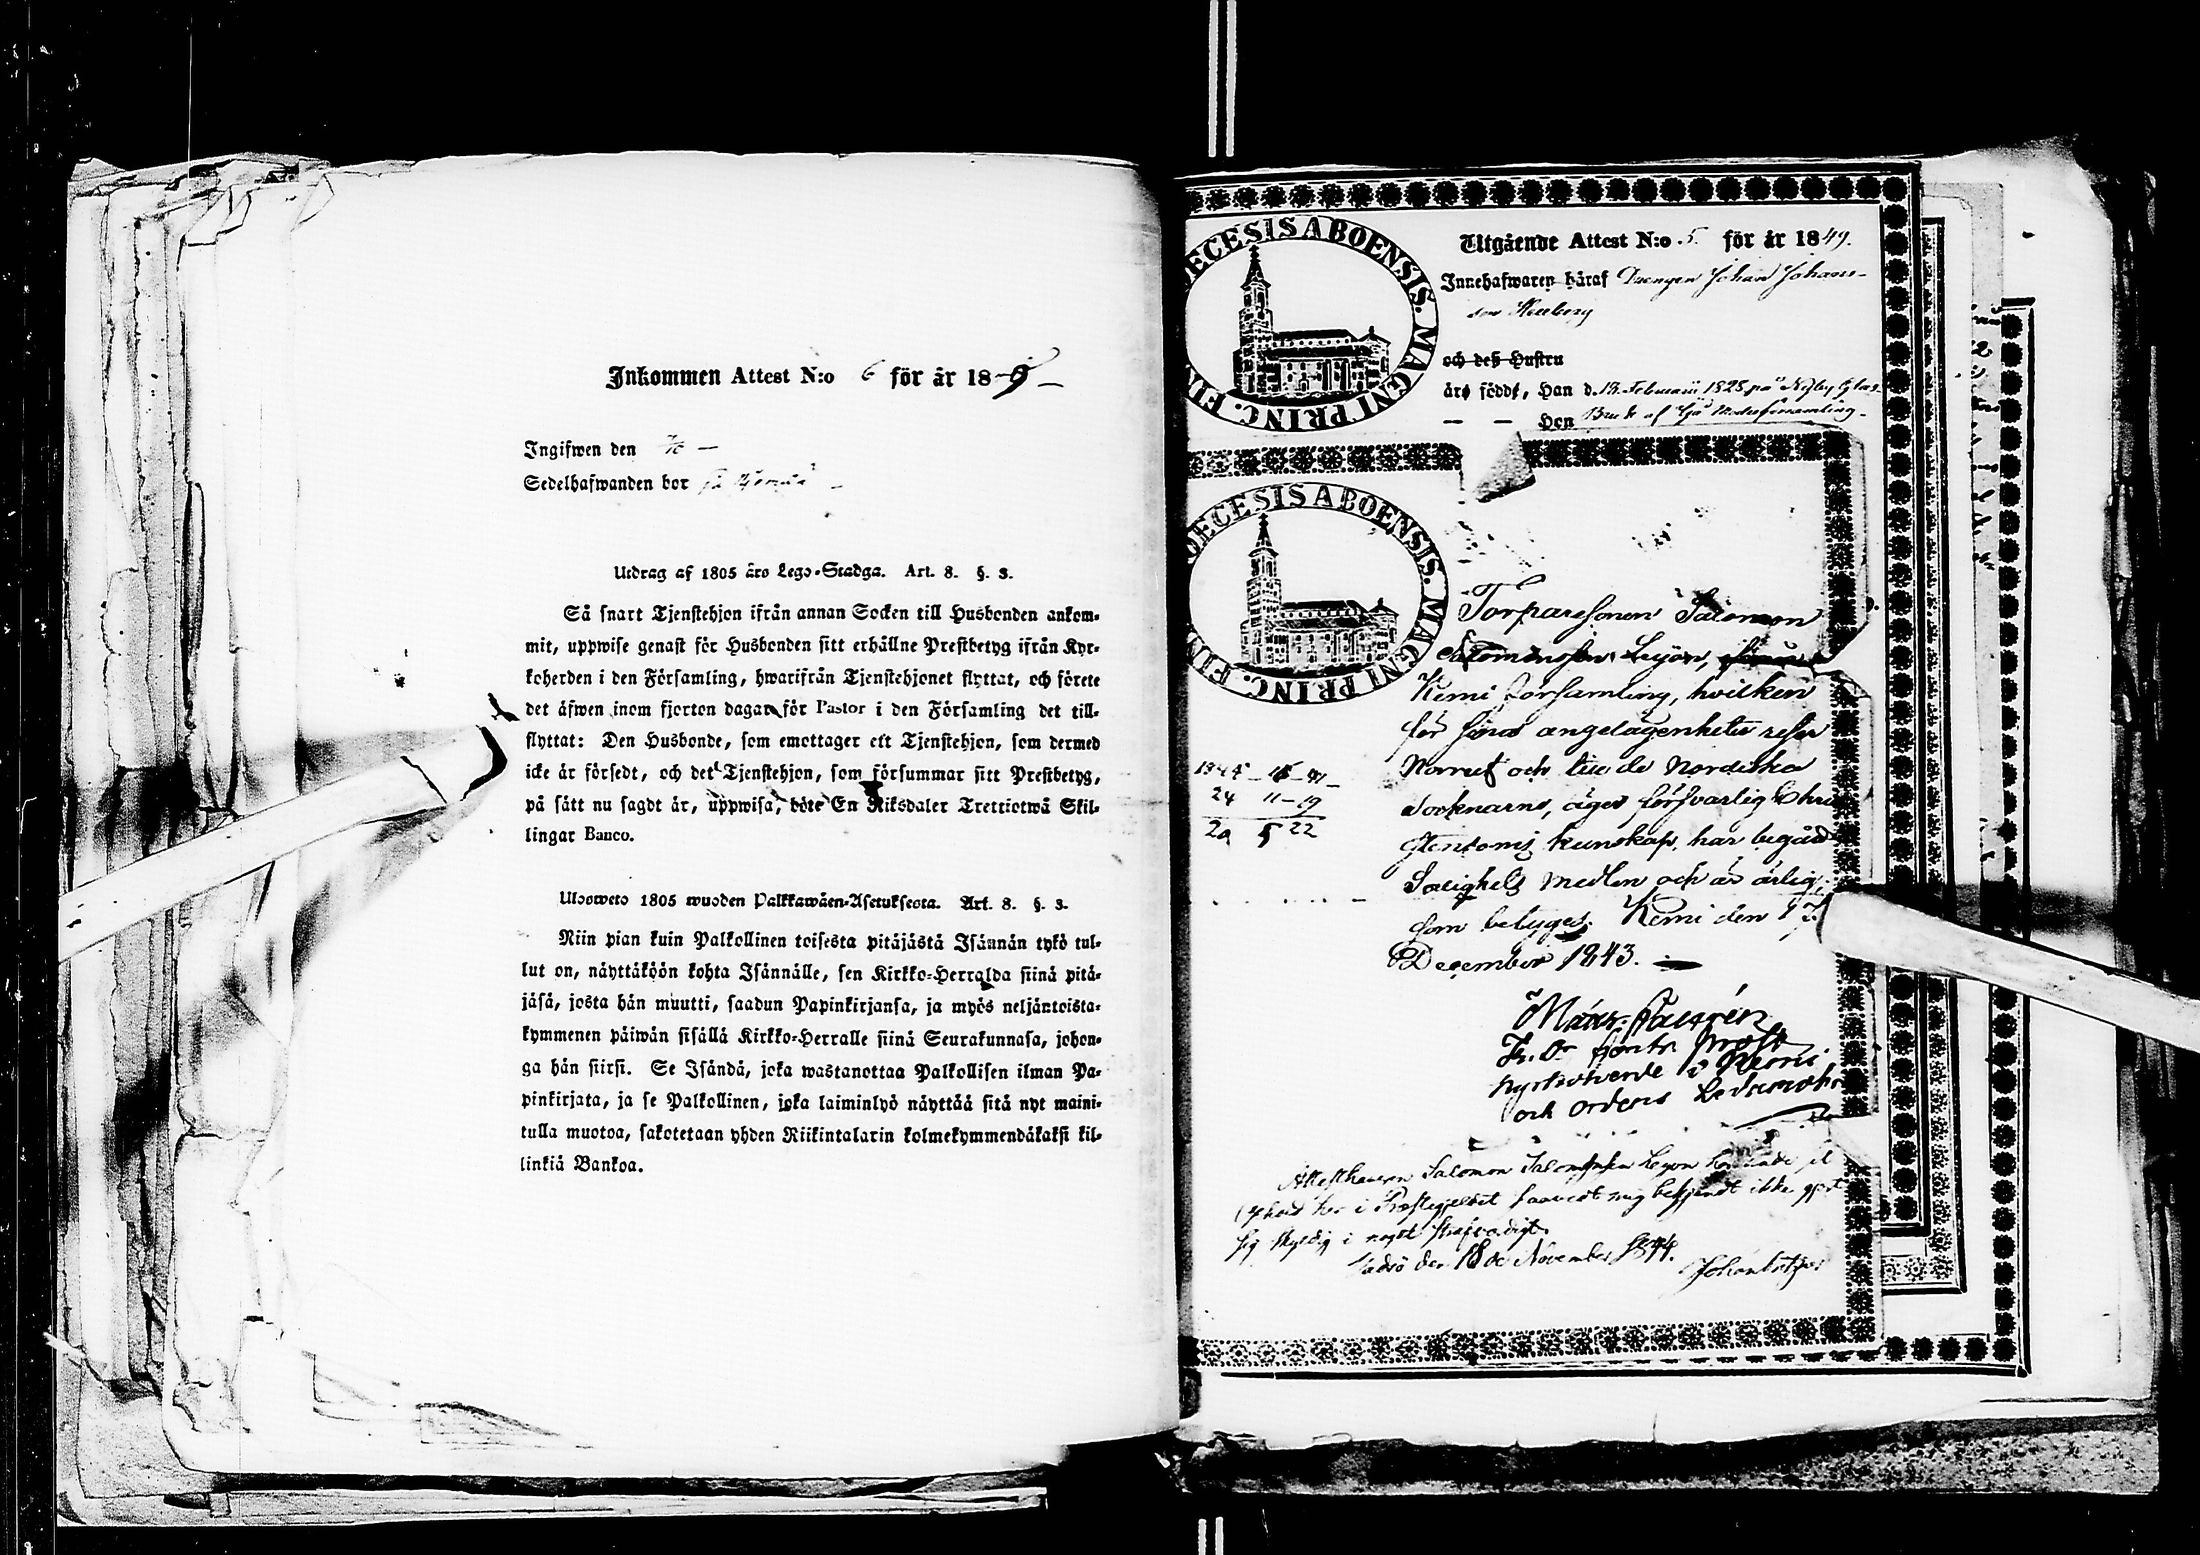 Inkommen Attest N:o 6 för år 18
Ingifwen den
Sedelhafwanden bor
Utdrag af 1805 års Lego-Stadga. Art. 8. §. 3.
Så snart Tjenstehjon ifrån annan Socken till Husbonden ankom-
mit, uppwise genast för Husbonden sitt erhållne Prestbetyg ifrån Kyr-
koherden i den Församling, hwarifrån Tjenstehjonet flyttat, och förete
det äfwen inom fjorton dagar för Pastor i den Församling det till-
flyttat: Den Husbonde, som emottager ett Tjenstehjon, som dermed
icke är försedt, och det Tjenstehjon, som försummar sitt Prestbetyg,
på sätt nu sagdt är, uppwisa, böte En Riksdaler Trettiotwå Skil-
lingar Banco.
Ulosweto 1805 wuoden Palkkawäen-Asetuksesta. Art. 8. §. 3.
Niin pian kuin Palkollinen toisesta pitäjästä Isännän tykö tul-
lut on, näyttäköön kohta Isännälle, sen Kirkko-Herralda siinä pitä-
jäsä, josta hän muutti, saadun Papinkirjansa, ja myös neljäntoista-
kymmenen päiwän sisällä Kirkko-Herralle siinä Seurakunnasa, johon-
ga hän siirsi. Se Isändä, joka wastanottaa Palkollisen ilman Pa-
pinkirjata, ja se Palkollinen, joka laiminlyö näyttää sitä nyt maini-
tulla muotoa, sakotetaan yhden Riikintalarin kolmekymmendäkaksi kil-
linkiä Bankoa.
DECESIS ABOENSIS. MAGNI PRINC. FIN
Utgående Attest N:o 5. för år 1849.
Innehafwaren häraf Drengen Johan Johans-
son
och deß Hustru
äro födde, Han d. Februarii 1828 på Glas
Hon Bruk af
DECESIS ABOENSIS. MAGNI PRINC. FIN
Torparesonen Salomon
Salomonsson Lejon,
Kemi församling, hvilken
för sina angelägenheter reser
Norrut och till de Nordiska
Socknarne, äger försvarlig Chri
stendoms kunskap, har begådt
Salighets medlen och är ärlig;
som betyges. Kemi den 17
December 1843.
24 11-19
5 22
Prost
Kyrkoherde i Kemi
och Ordens Ledamot
Attesthavern Salomon Salomonsen Lejon
i Præstegjeldet saavidt mig bekjendt ikke gjort
sig skyldig i noget strafværdigt.
Vadsö den 18de November 1844.